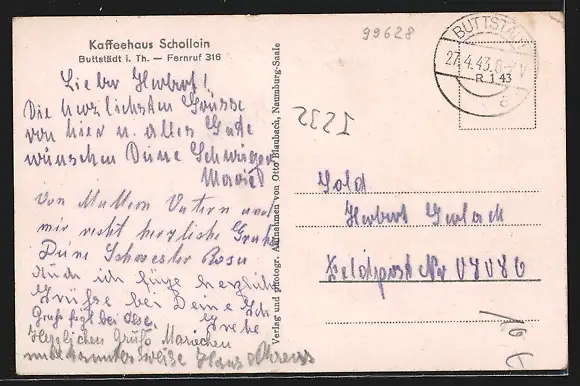 Kaffeehaus Schollain
Buttstädt i. Th. — Fernruf 316
Lieber Herbert!
Die herzlichsten Grüsse
von hier u. alles Gute
wünschen Deine Schwägerin
von Muttern Vatern und
mir recht herzliche Grüße
Deine Schwester Rosa
Auch ich füge herzliche
Grüße bei Deine
Gruß fügt bei Ilse.
Herzlichen Gruß Mariechen
Hans Ahrens
Verlag und photogr. Aufnahmen von Otto Blaubach, Naumburg-Saale
99628
BUTTSTÄDT
27.4.43.
R 1 43
a
Sold
Herbert Gerlach
Feldpost Nr 08086